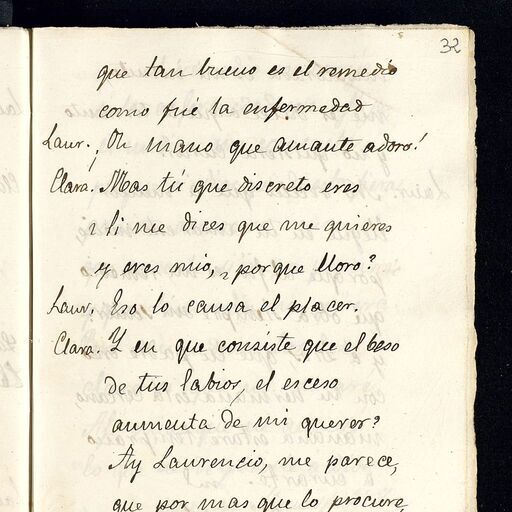 32
que tan bueno es el remedio
como fué la enfermedad
Laur. ¡Oh mano que amante adoro!
Clara. Mas tú que discreto eres
si me dices que me quieres
y eres mio, ¿porque lloro?
Laur. Eso lo causa el placer.
Clara. Y en que consiste que el beso
de tus labios, el esceso
aumenta de mi querer?
Ay Laurencio, me parece,
que por mas que lo procure,